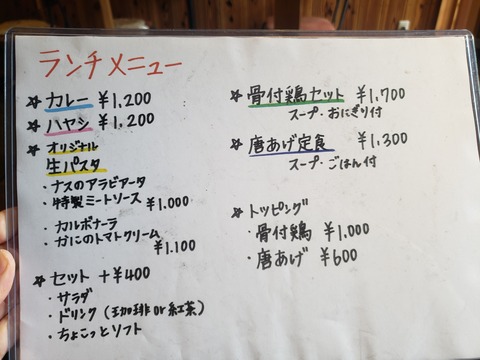 ランチメニュー
☆ カレー ¥1,200
☆ ハヤシ ¥1,200
☆ オリジナル
生パスタ
・ナスのアラビアータ
・特製ミートソース ¥1.000
カルボナーラ
・かにのトマトクリーム
¥1.100
☆ セット +¥400
・サラダ
・ドリンク(珈琲or紅茶)
・ちょこっとソフト
☆ 骨付鶏セット ¥1,700
スープ・おにぎり付
☆ 唐あげ定食 ¥1,300
スープ・ごはん付
☆ トッピング
・骨付鶏 ¥1,000
・唐あげ ¥600